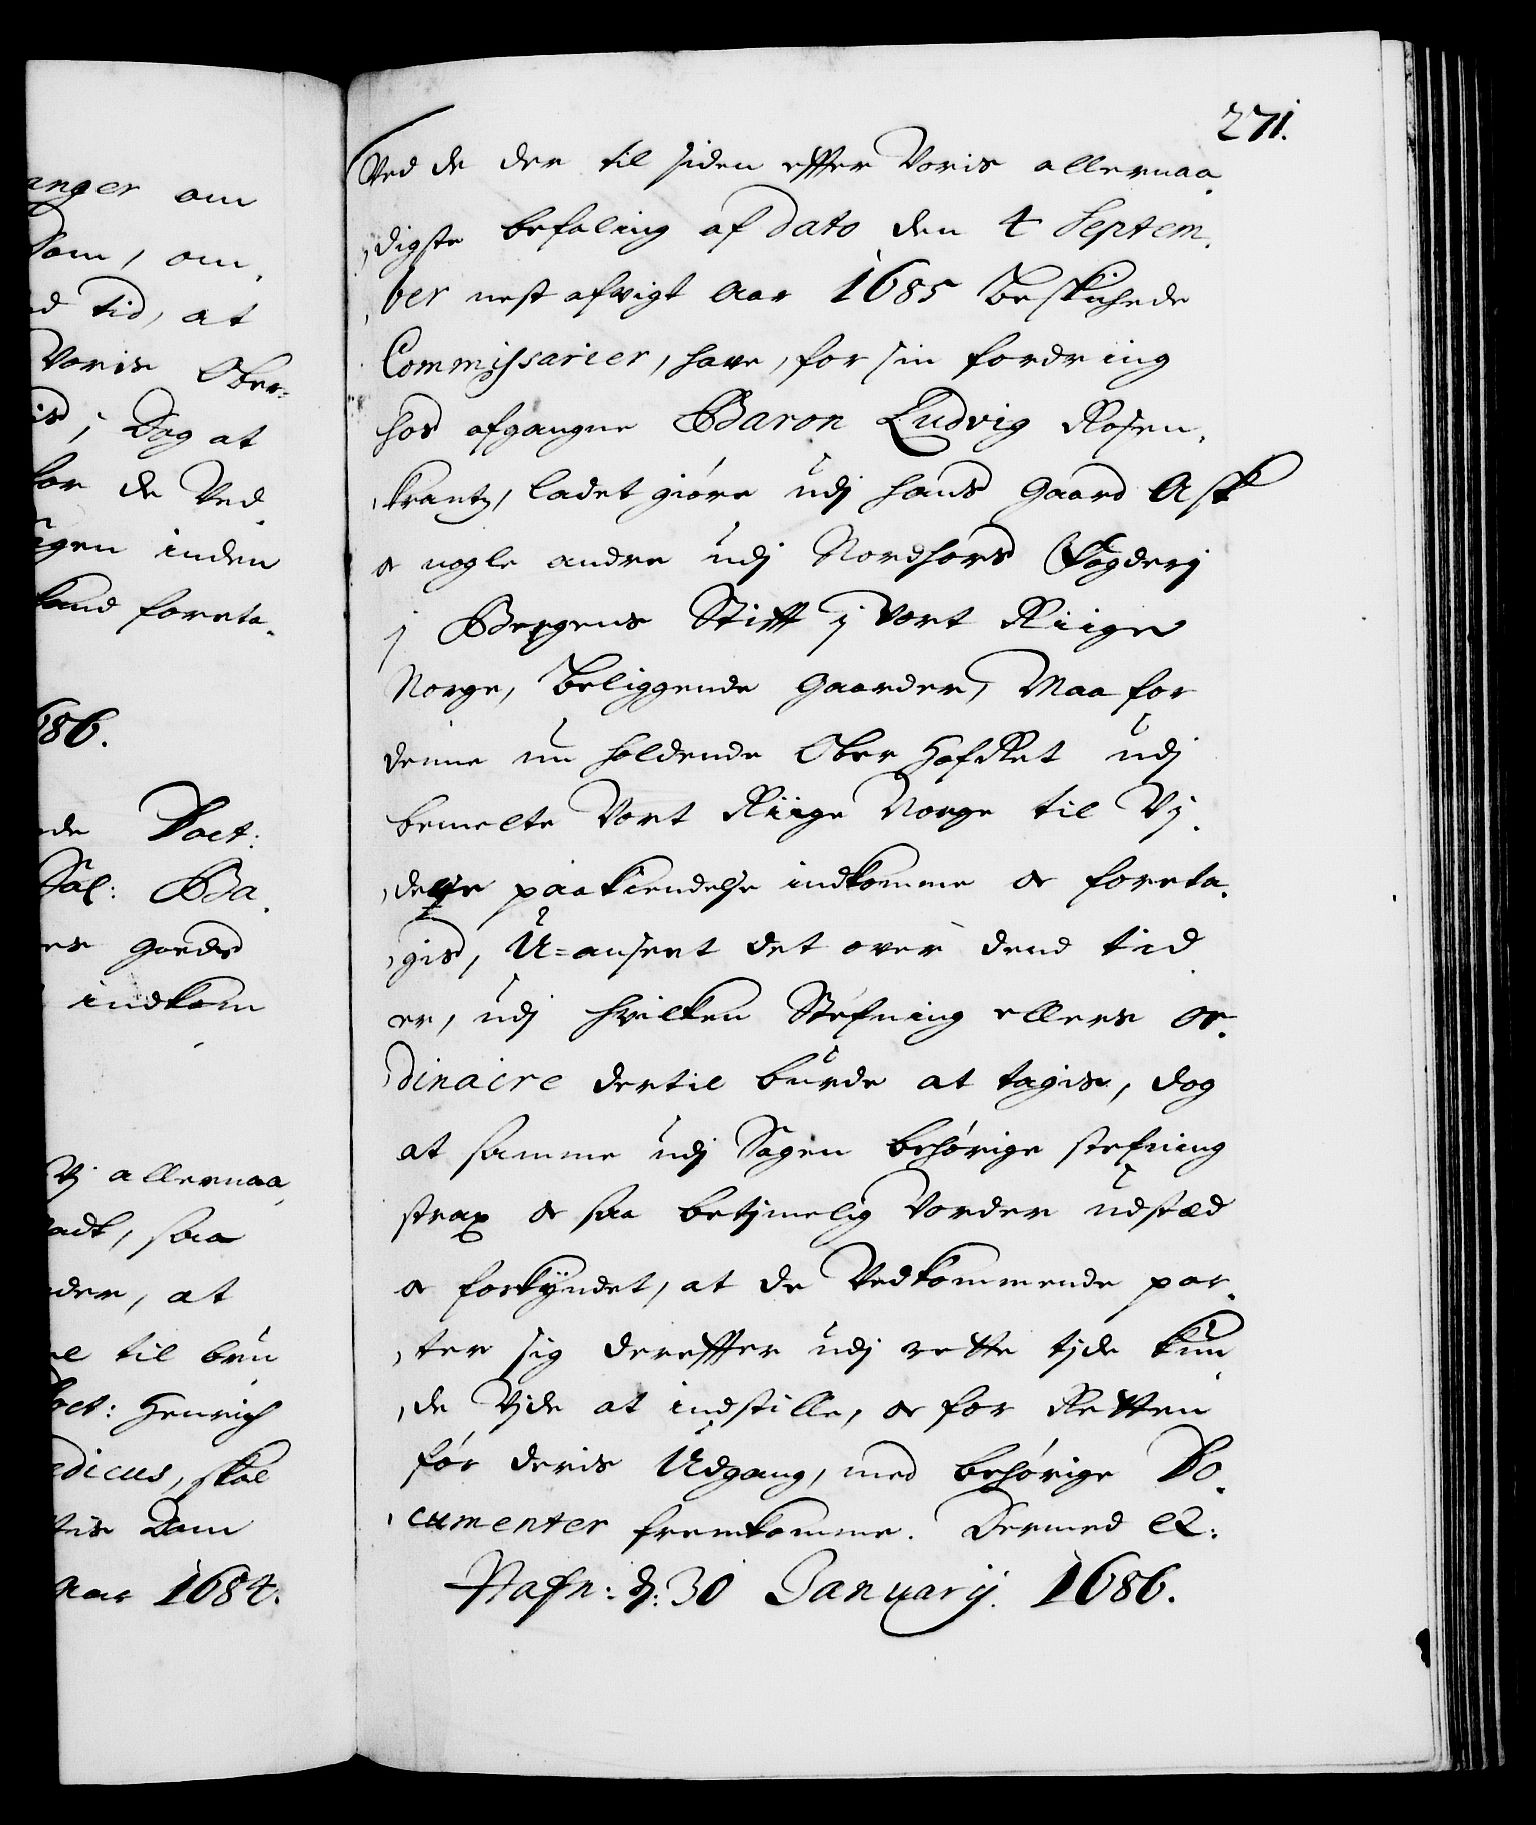 anger om
Dom, om,
ed tid, at
Voris Ober=
is, i Dog at
for de Ved
agen inden
foreta,
686.
Doct:
Sal: Ba,
es goeds
indkom
Vj allernaa,
saa
der, at
til bru,
oct: Henrich
edicus, skal
Dom
Aar 1684.
271.
Ved de der til siden effter Voris allernaa,
,digste befaling af dato den 4 Septem,
,ber nest afvigt Aar 1685 Beskichede
Commissarier, have, for sin fordring
hos afgangne Baron Ludvig Rosen,
,krantz, ladet giøre udj hans Gaard Ask
oc nogle andre udj Nordhors Fogderj
j Bergens Stifft j Vort Riige
Norge, beliggende Gaarder, Maa for
denne nu holdende Ober HofRet udj
bemelte Vort Riige Norge til Vj,
,dere paakiendelse indkomme oc foreta,
,gis, U=anseet det over dend tid
er, udj hvilken Stefning ellers or,
,dinaire dertil burde at tagis, dog
at samme udj Sagen behørige stefning
strax oc saa betjmelig vorder udstæd
oc forkyndet, at de Vedkommende par,
,ter sig dereffter udj rette tjde kun,
,de Vjde at indstille, oc for Retten
før deris Udgang, med behørige Do,
,cumenter fremkomme. Dermed &:
Hafn: d: 30 Januarij. 1686.